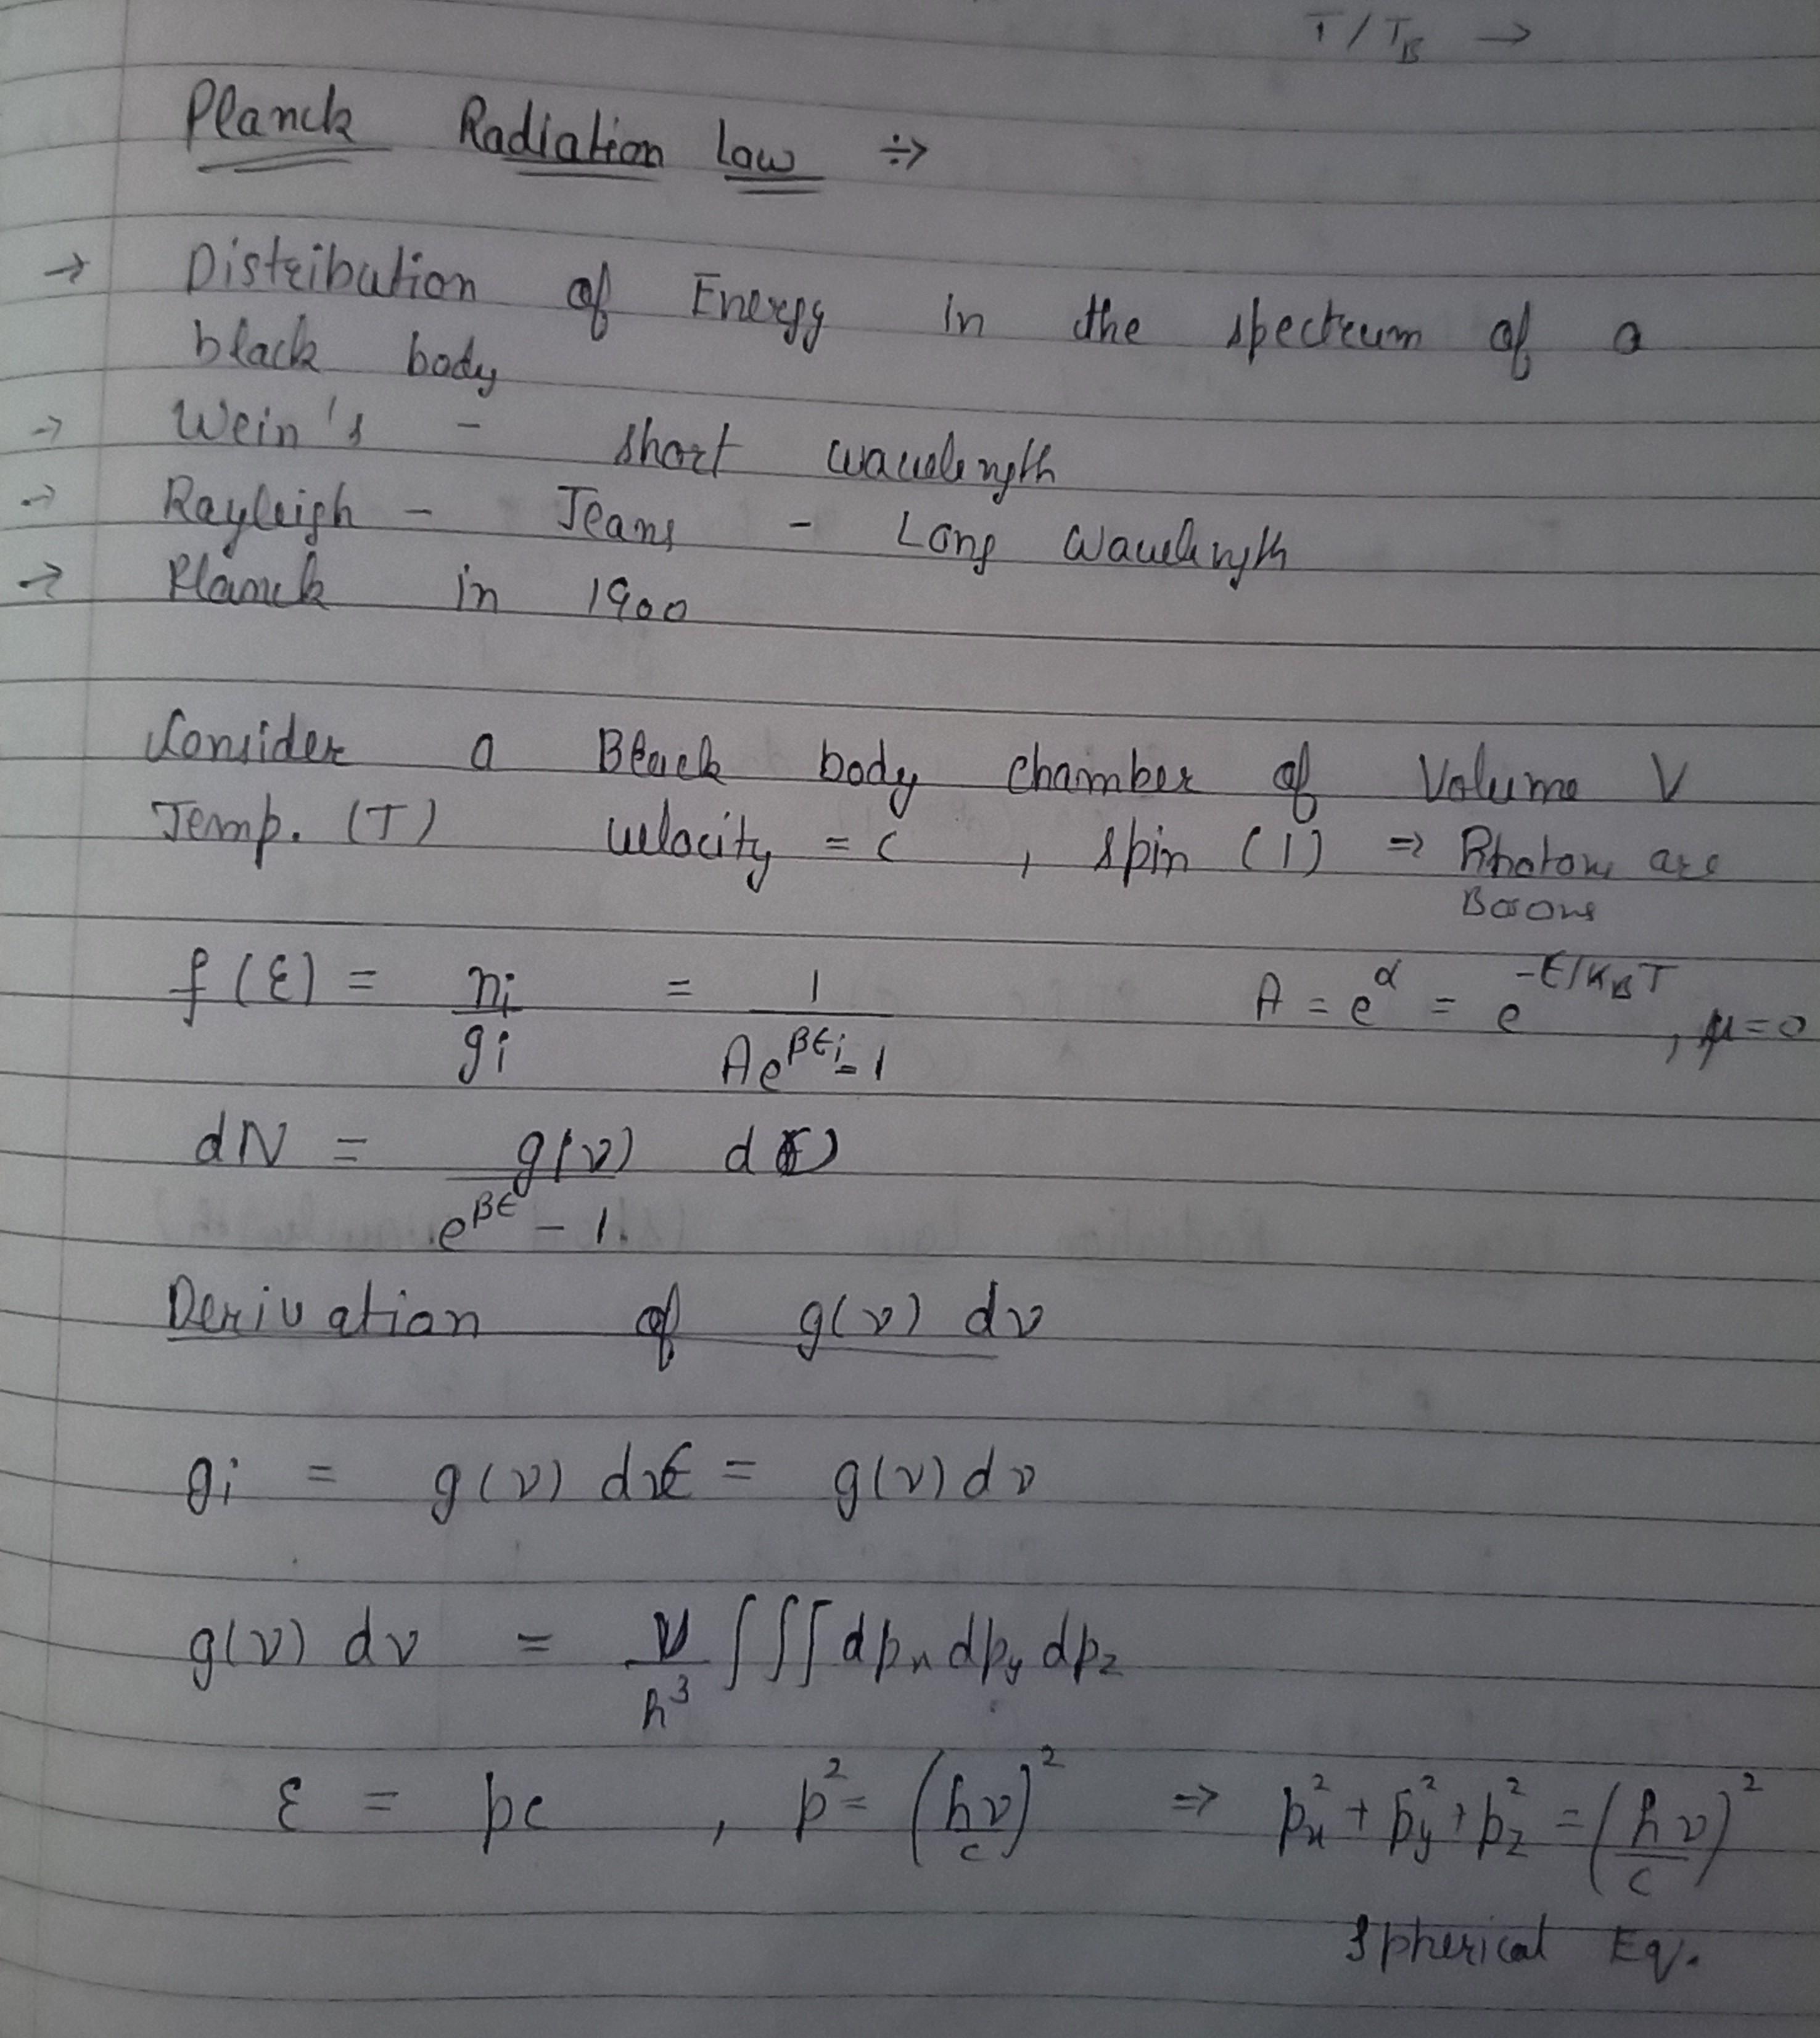 T/T_B →
Planck Radiation Law ÷>
→ Distribution of Energy in the spectrum of a
black body
→ Wein's - short wavelength
→ Rayleigh - Jeans - Long Wavelength
→ Planck in 1900
Consider a Black body chamber of Volume V
Temp. (T) velocity = c , spin (1) ⇒ Photons are
Bosons
f(ε) = n_i/g_i = 1/(Ae^{βϵ_i} - 1) A = e^α = e^{-ϵ/K_BT} , μ=0
dN = g(ν)/(e^{βϵ} - 1) d()
Derivation of g(ν) dν
g_i = g(ν) dϵ = g(ν) dν
g(ν) dν = V/h³ ∫∫∫ dp_x dp_y dp_z
ε = pc , p² = (hν/c)² ⇒ p_x² + p_y² + p_z² = (hν/c)²
Spherical Eq.